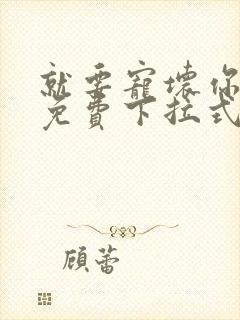 就要寵壞你
免費下拉式
顾蕾